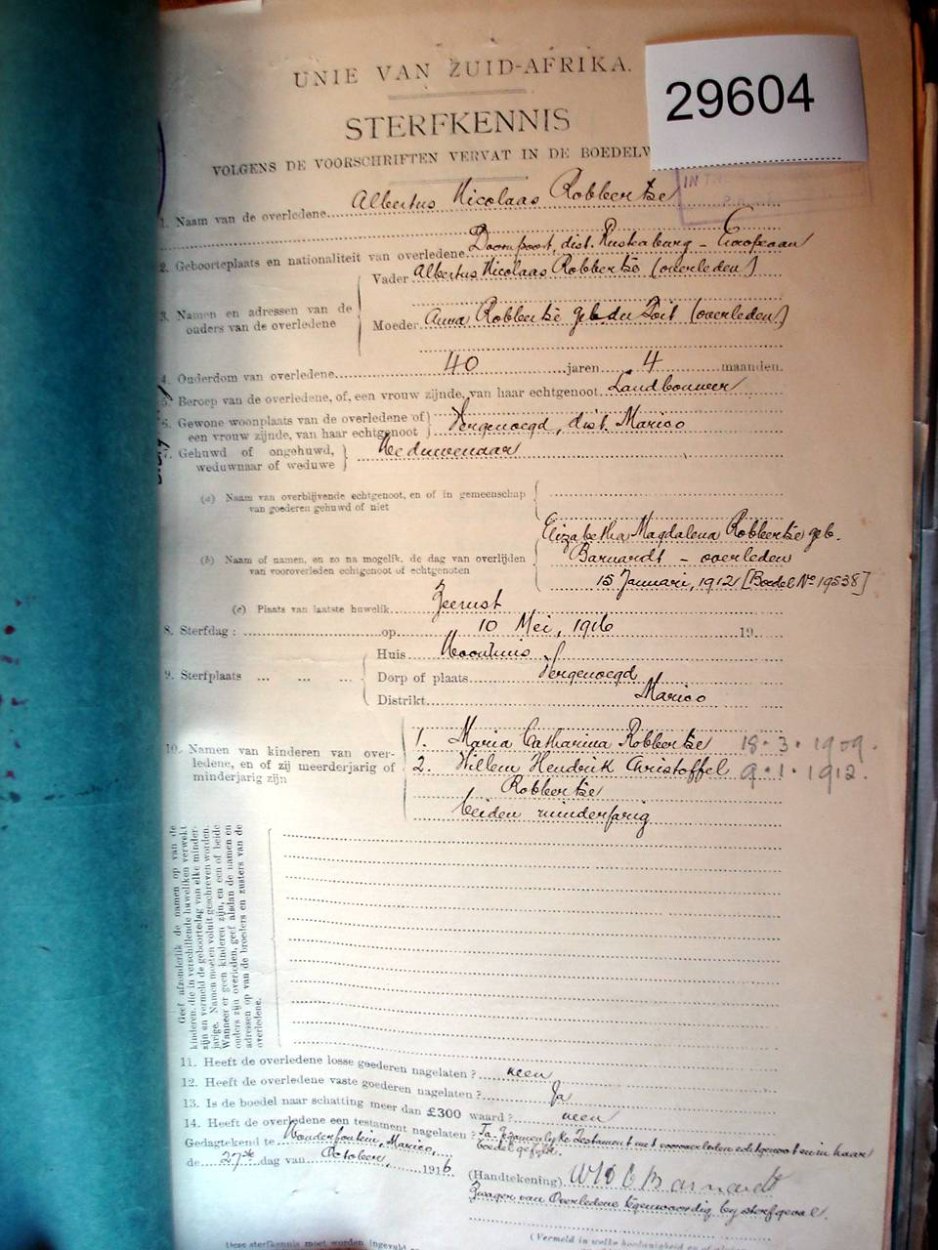 UNIE VAN ZUID-AFRIKA.
29604
STERFKENNIS
VOLGENS DE VOORSCHRIFTEN VERVAT IN DE
IN
1. Naam van de overledene Albertus Nicolaas Robbertse
2. Geboorteplaats en nationaliteit van overledene Doornpoort, dist. Rustenburg - Europeaan
3. Namen en adressen van de ouders van de overledene
Vader Albertus Nicolaas Robbertse (overleden)
Moeder Anna Robbertse geb. du Toit (overleden)
4. Ouderdom van overledene 40 jaren 4 maanden.
5. Beroep van de overledene, of, een vrouw zijnde, van haar echtgenoot Landbouwer
6. Gewone woonplaats van de overledene of
een vrouw zijnde, van haar echtgenoot Vergenoegd, dist. Marico
7. Gehuwd of ongehuwd,
weduwnaar of weduwe Weduwenaar
(a) Naam van overblijvende echtgenoot, en of in gemeenschap
van goederen gehuwd of niet
(b) Naam of namen, en zo na mogelik, de dag van overlijden
van vooroverleden echtgenoot of echtgenoten
Elizabetha Magdalena Robbertse geb.
Barnardt - overleden
15 Januari, 1912 [Boedel No 19538]
(c) Plaats van laatste huwelik Zeerust
8. Sterfdag: op 10 Mei, 1916 19
9. Sterfplaats
Huis Woonhuis
Dorp of plaats Vergenoegd
Distrikt Marico
10. Namen van kinderen van over-
ledene, en of zij meerderjarig of
minderjarig zijn
1. Maria Catharina Robbertse 18.3.1909.
2. Willem Hendrik Christoffel 9.1.1912.
Robbertse
beiden minderjarig
Geef afzonderlik de namen op van de
kinderen, die in verschillende huweliken verwekt
zijn en vermeld de geboortedag van elke minder-
jarige. Namen moeten voluit geschreven worden.
Wanneer er geen kinderen zijn, en een of beide
ouders zijn overleden, geef alsdan de namen en
adressen op van de broeders en zusters van de
overledene.
11. Heeft de overledene losse goederen nagelaten? neen
12. Heeft de overledene vaste goederen nagelaten? Ja
13. Is de boedel naar schatting meer dan £300 waard? neen
14. Heeft de overledene een testament nagelaten? Ja Testament met vooroverleden echtgenoot en in haar
boedel
Gedagtekend te Wonderfontein, Marico,
de 27ste dag van October, 1916
(Handtekening) Barnardt
Zwager van Overledene tegenwoordig bij sterfgeval.
(Vermeld in welke
Deze sterfkennis moet worden